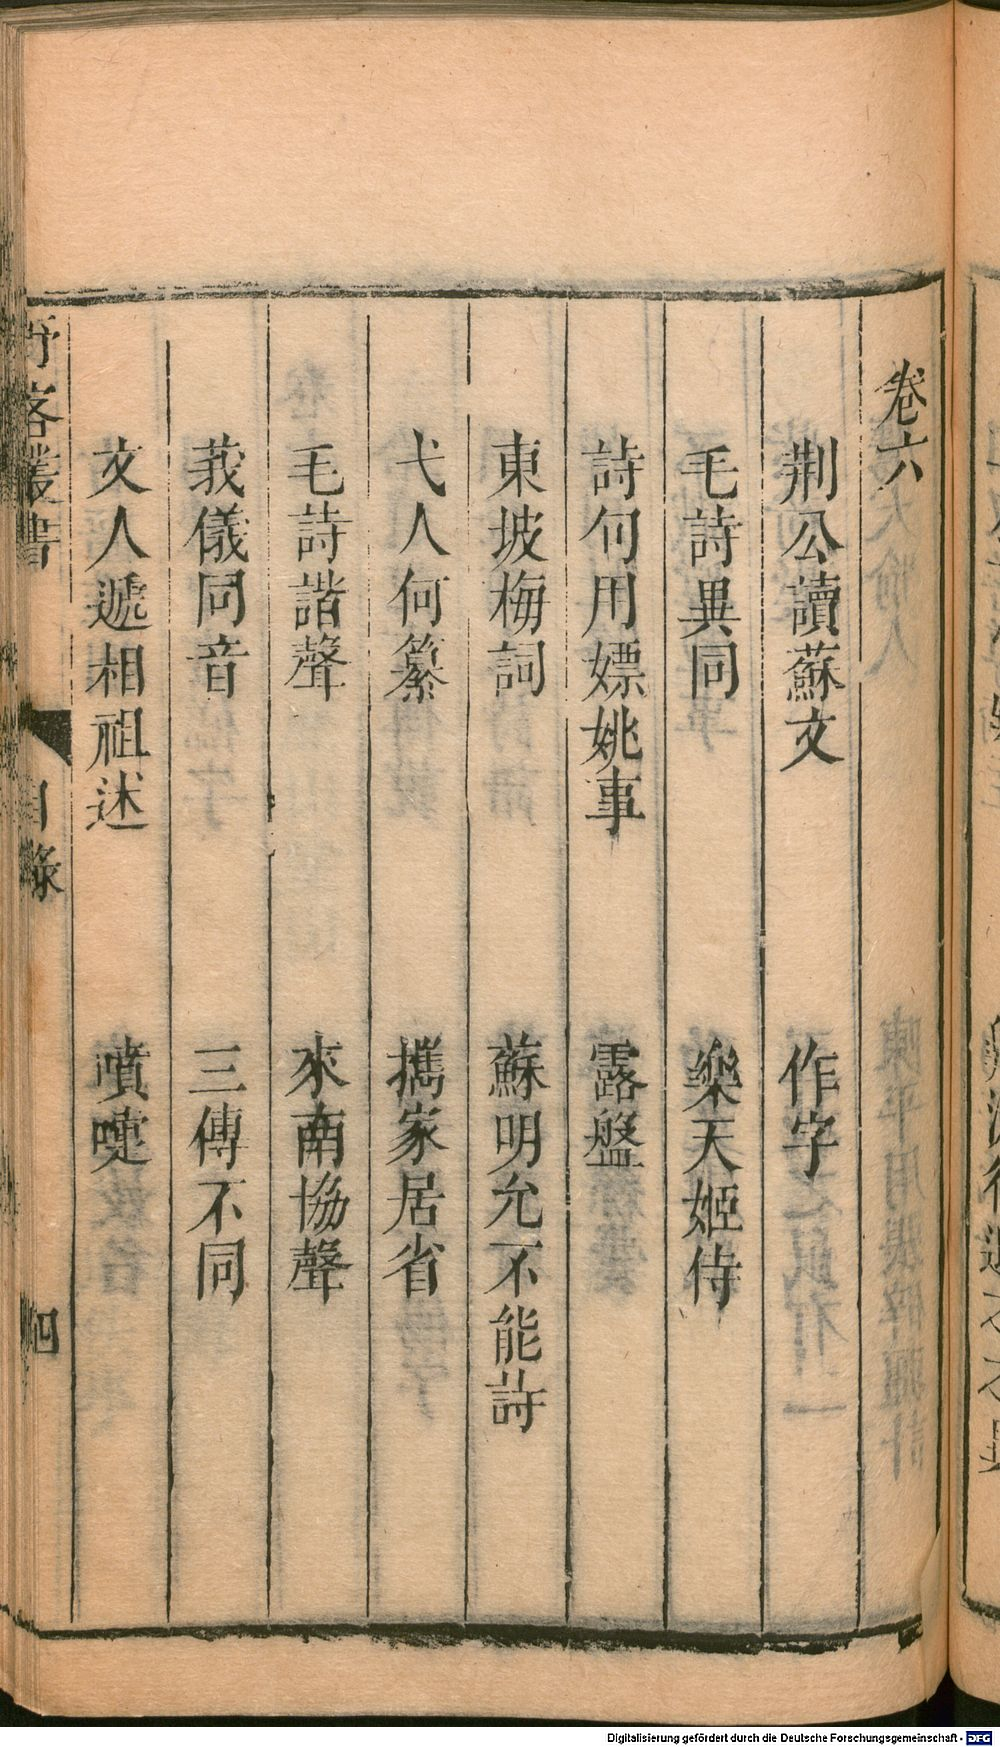 卷六
荆公讀蘇文 作字
毛詩異同 樂天姬侍
詩何用嫖姚事 露盤
東坡梅詞 蘇明允不能詩
弋人何篡 攜家居省
毛詩諧聲 來南協聲
莪儀同音 三傳不同
文人遞相祖述 噴嚏
野客叢書 目錄 四
Digitalisierung gefördert durch die Deutsche Forschungsgemeinschaft - DFG